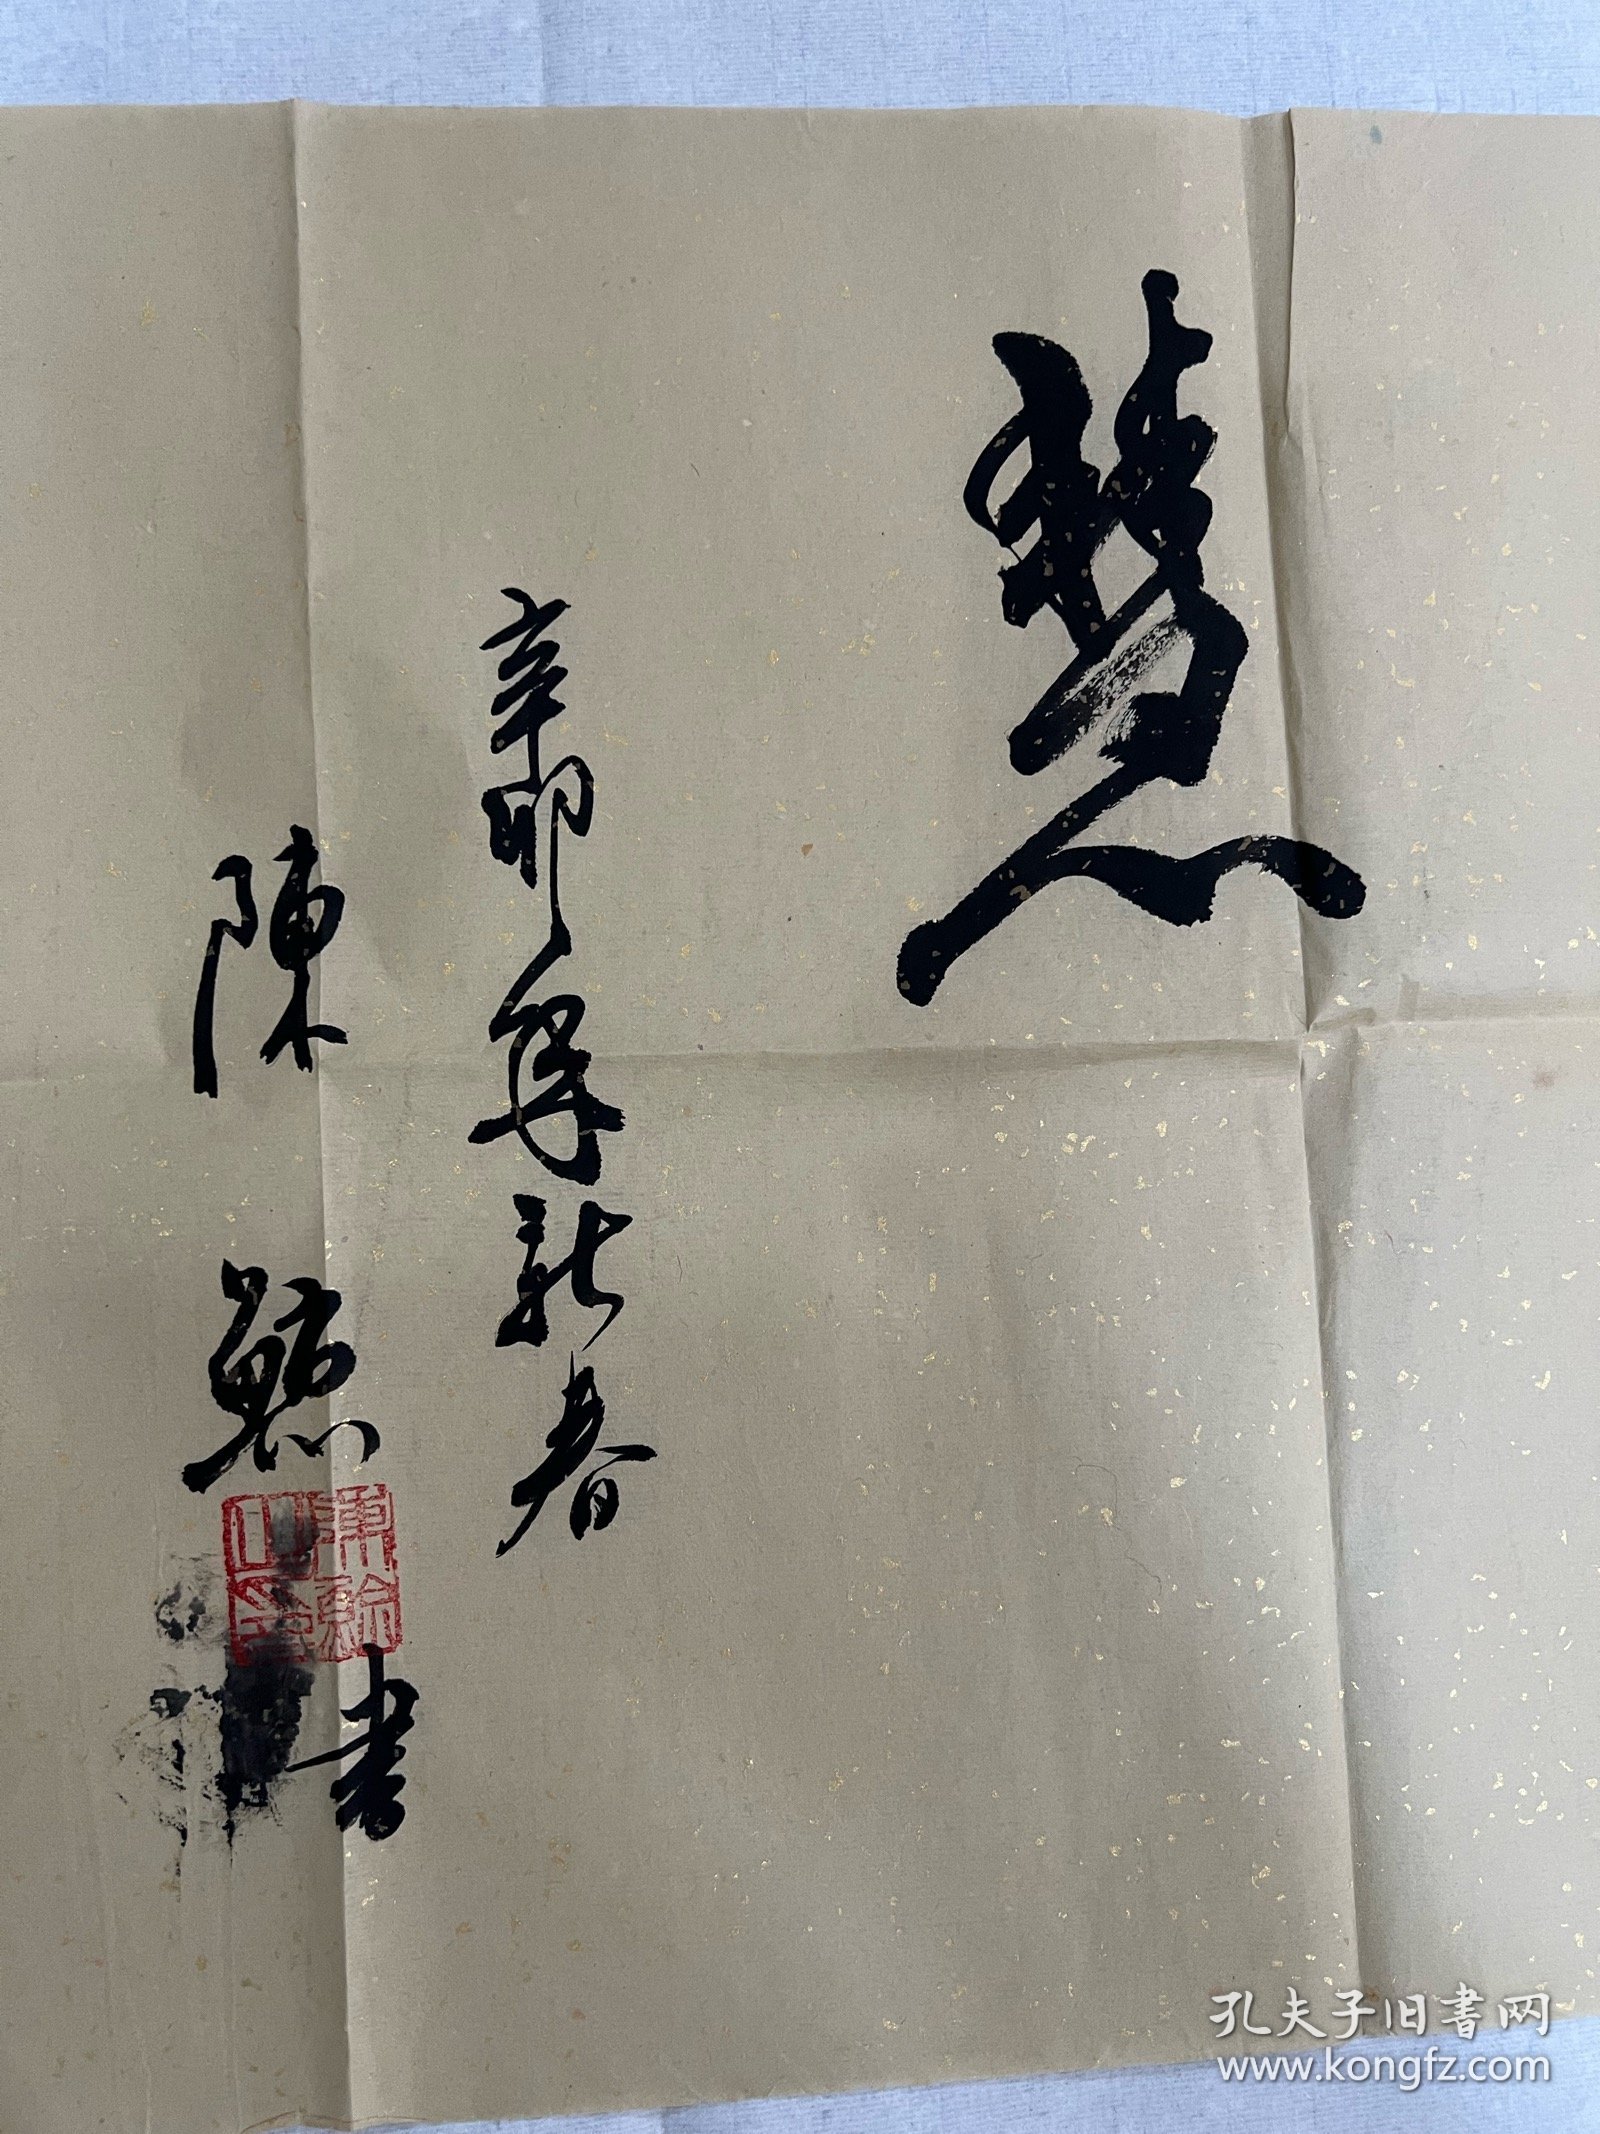 慧
辛卯年新春
陳
書
孔夫子旧书网
www.kongfz.com